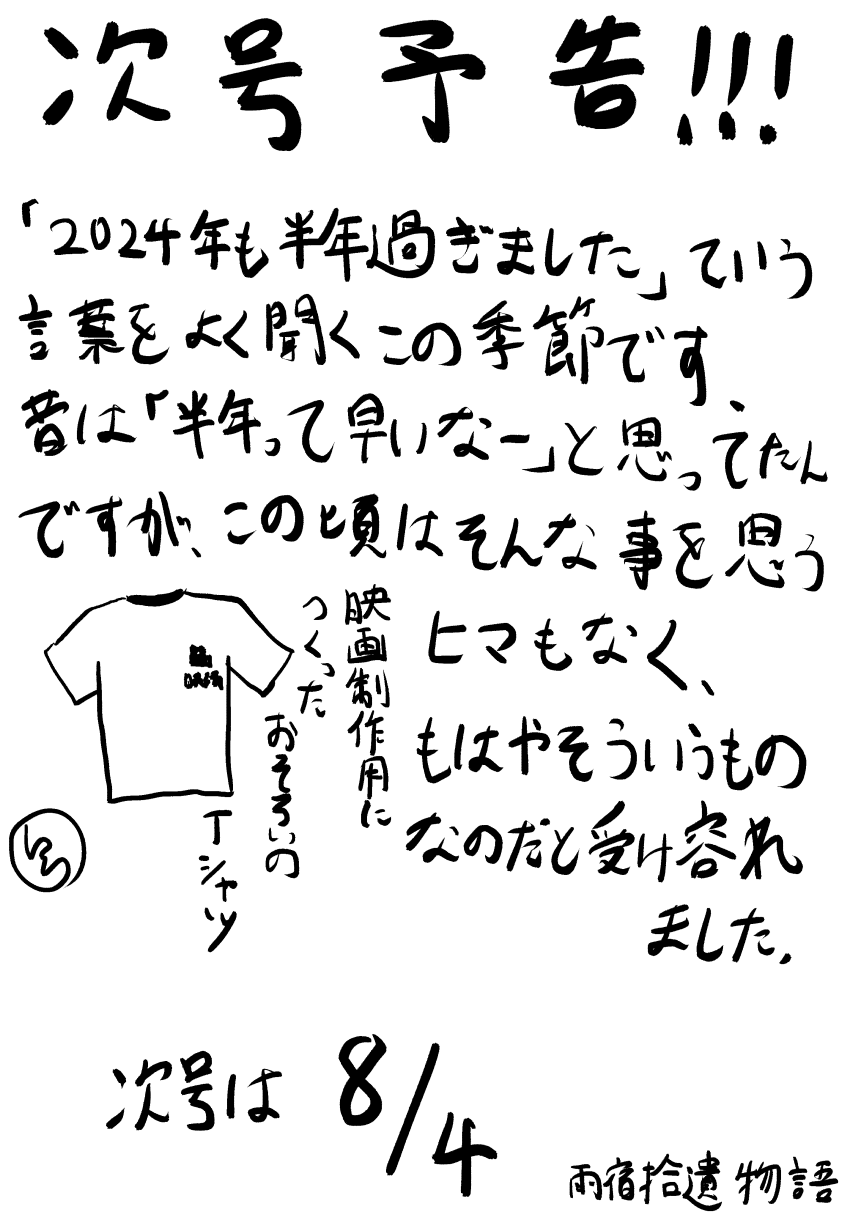 次号予告!!!
「2024年も半年過ぎました」ていう
言葉をよく聞くこの季節です
昔は「半年って早いなー」と思ってたん
ですが、この頃はそんな事を思う
ヒマもなく、
もはやそういうもの
なのだと受け容れ
ました.
映画制作用に
つくった
おそろいの
Tシャツ
次号は 8/4
雨宿拾遺物語